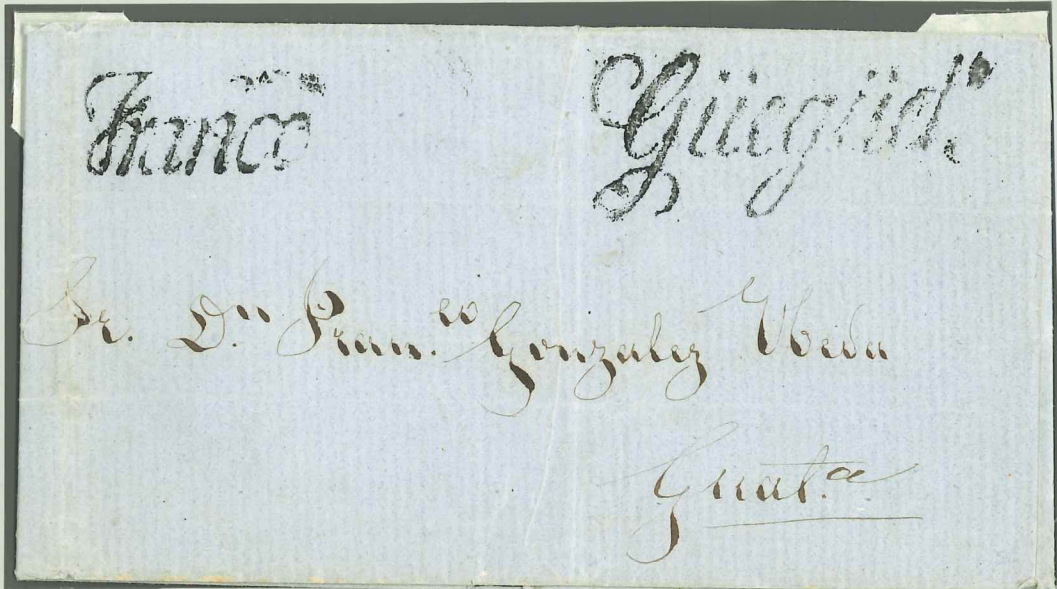 Franco Güegüet.º
Sr. D.n Fran.co Gonzalez Ubeda
Guat.a